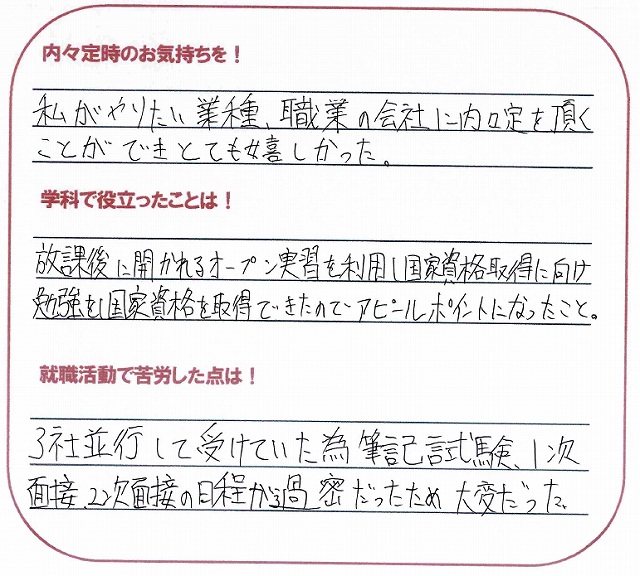 内々定時のお気持ちを！
私がやりたい業種、職業の会社に内定を頂く
ことができとても嬉しかった。
学科で役立ったことは！
放課後に開かれるオープン実習を利用し国家資格取得に向け
勉強をし国家資格を取得できたのでアピールポイントになったこと。
就職活動で苦労した点は！
3社並行して受けていた為筆記試験、1次
面接、2次面接の日程が過密だったため大変だった。